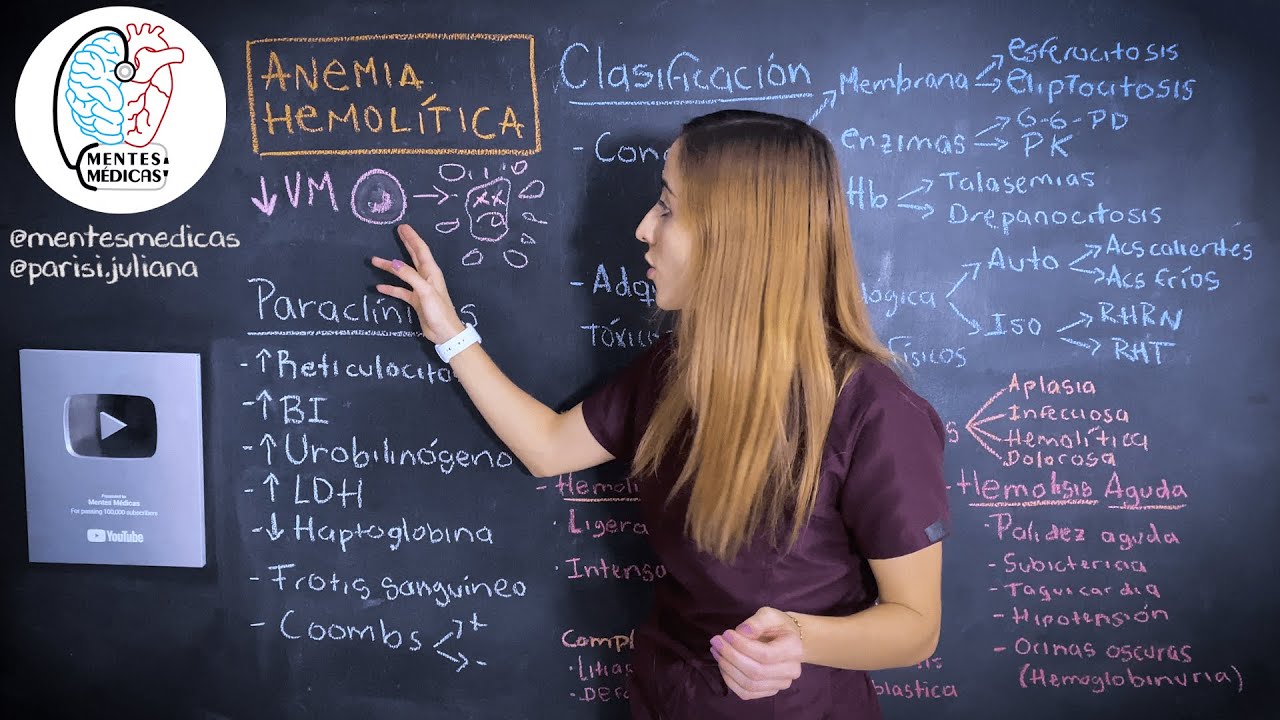 MENTES
MÉDICAS!
@mentesmedicas
@parisi.juliana
Presented to
Mentes Médicas
For passing 100,000 subscribers
YouTube
ANEMIA
HEMOLÍTICA
↓VM
Paraclíni s
-↑Reticulocito
-↑BI
-↑Urobilinógeno
-↑LDH
-↓Haptoglobina
-Frotis sanguíneo
-Coombs + -
Clasificación
- Con
Membrana
esferocitosis
eliptocitosis
enzimas
G-6-PD
PK
Hb
Talasemias
Drepanocitosis
- Adq
lógica
Auto
Acs calientes
Acs fríos
Iso
RHRN
RHT
Tóxico
físicos
s
Aplasia
Infecciosa
Hemolítica
Dolorosa
-Hemoli
·Ligera
·Intensa
Compl
·Litias
is
blastica
-Hemolisis Aguda
·Palidez aguda
-Subictericia
-Taquicardia
-Hipotensión
-Orinas oscuras
(Hemoglobinuria)